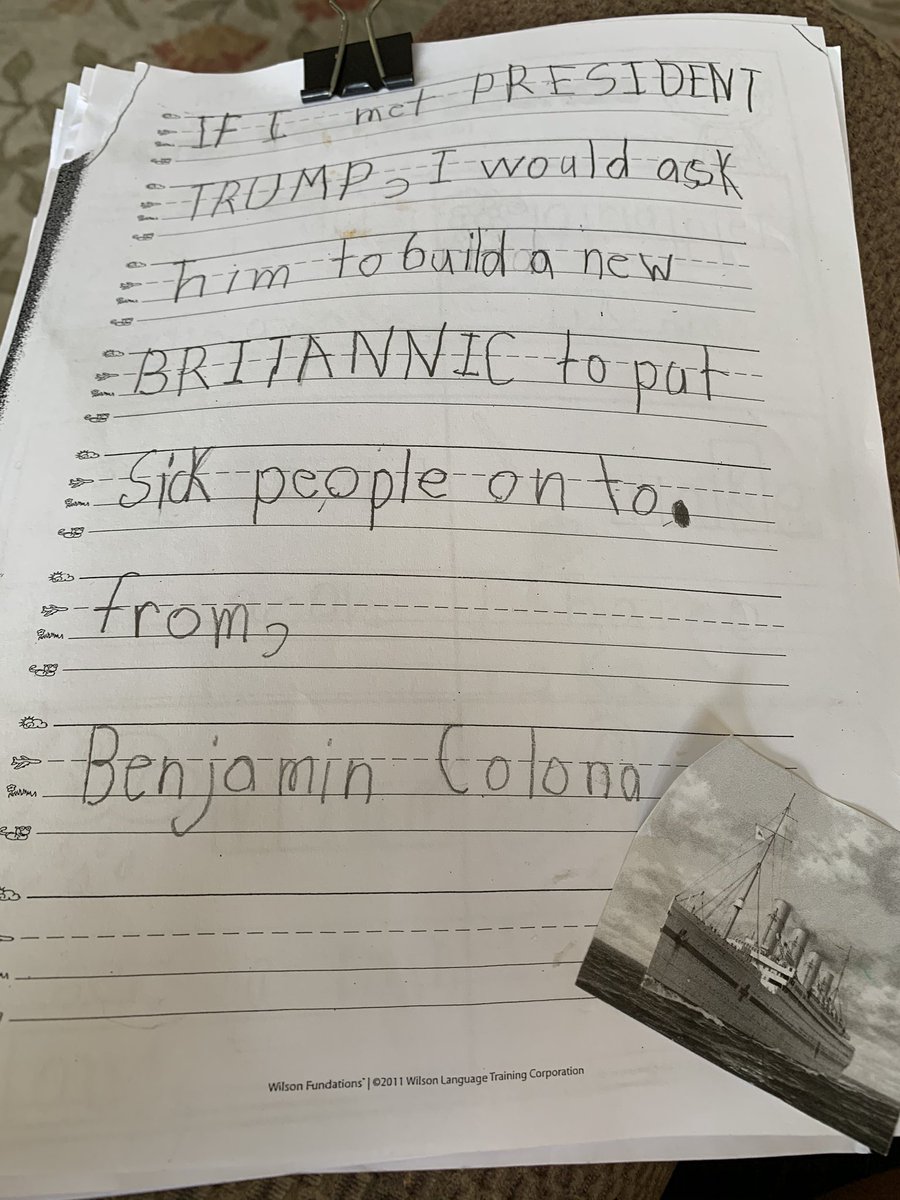 IF I met PRESIDENT
TRUMP, I would ask
him to build a new
BRITANNIC to put
Sick people on to.
from,
Benjamin Colona
Wilson Fundations® | ©2011 Wilson Language Training Corporation